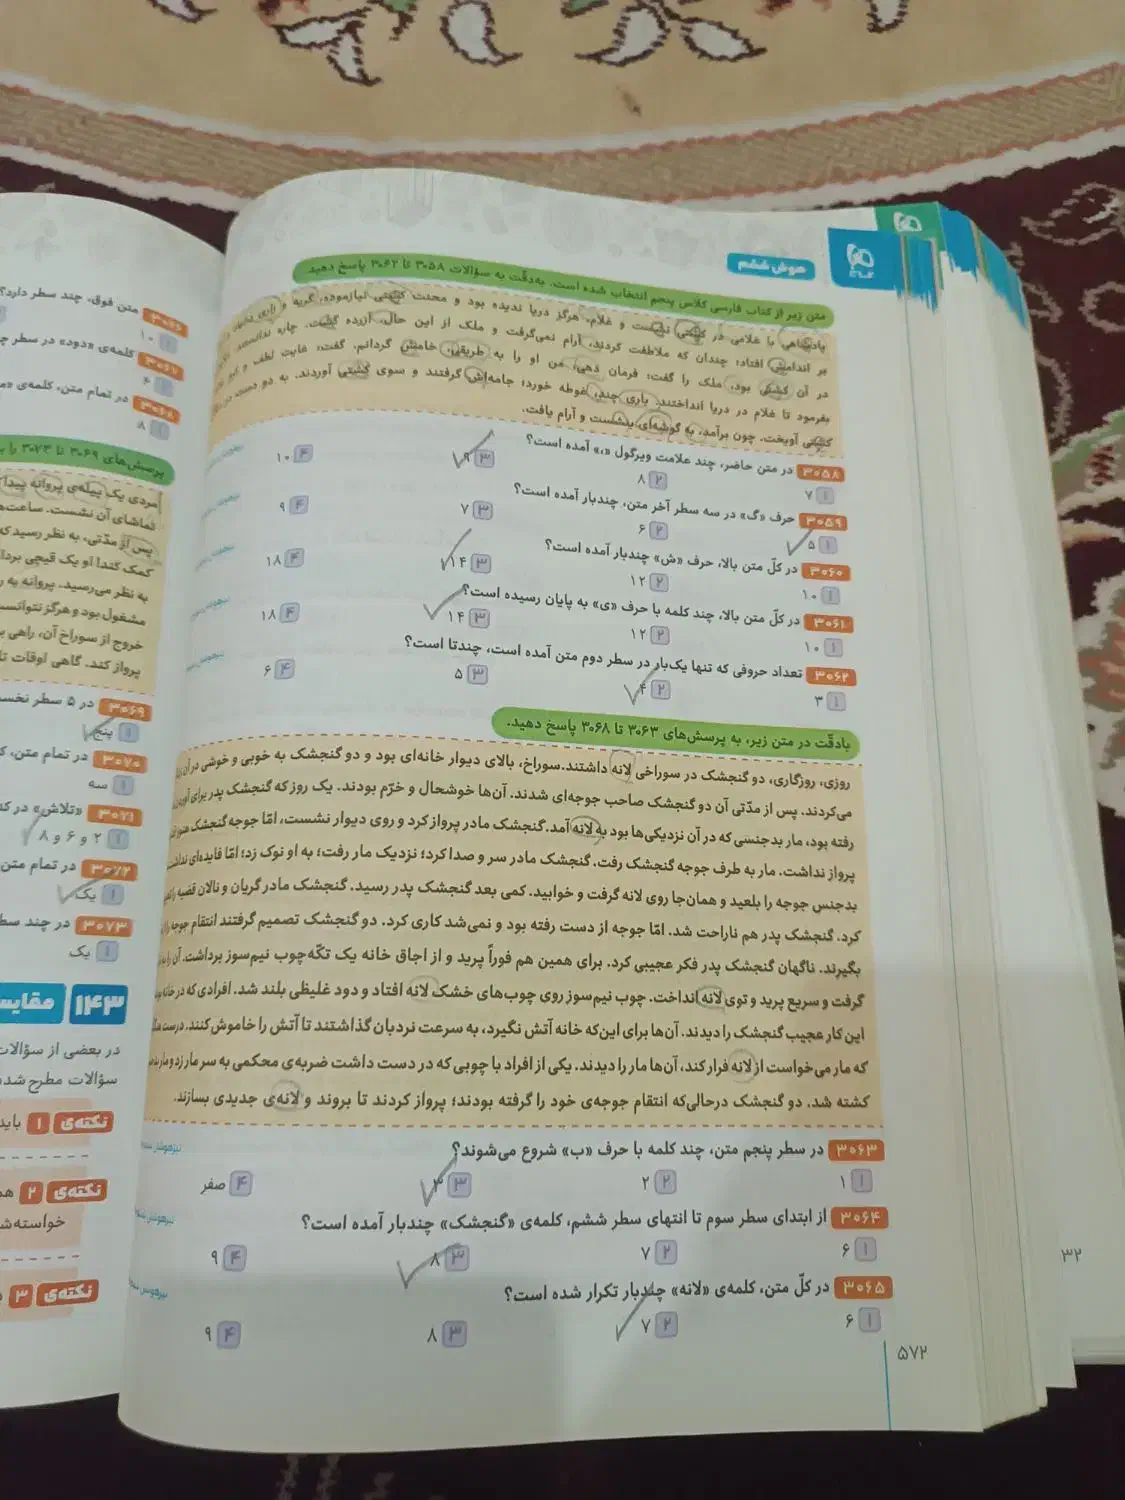 گاج
هوش ششم
متن زیر از کتاب فارسی کلاس پنجم انتخاب شده است. به‌دقّت به سؤالات ۳۰۵۸ تا ۳۰۶۲ پاسخ دهید.
پادشاهی با غلامی در کشتی نشست و غلام، هرگز دریا ندیده بود و محنت کشتی نیازموده، گریه و زاری
بر اندامش افتاد؛ چندان که ملاطفت کردند، آرام نمی‌گرفت و ملک از این حال، آزرده گشت. چاره ندانستند.
در آن کشتی بود، ملک را گفت: فرمان دهی، من او را به طریقی، خامش گردانم. گفت: غایت لطف و
بفرمود تا غلام در دریا انداختند. باری چند، غوطه خورد؛ جامه‌اش گرفتند و سوی کشتی آوردند. به دو دست در
کشتی آویخت. چون برآمد، به گوشه‌ای بنشست و آرام یافت.
۳۰۵۸ در متن حاضر، چند علامت ویرگول «،» آمده است؟
۱ ۷ ۲ ۸ ۳ ۹ ۴ ۱۰
۳۰۵۹ حرف «گ» در سه سطر آخر متن، چندبار آمده است؟
۱ ۵ ۲ ۶ ۳ ۷ ۴ ۹
۳۰۶۰ در کلّ متن بالا، حرف «ش» چندبار آمده است؟
۱ ۱۰ ۲ ۱۲ ۳ ۱۴ ۴ ۱۸
۳۰۶۱ در کلّ متن بالا، چند کلمه با حرف «ی» به پایان رسیده است؟
۱ ۱۰ ۲ ۱۲ ۳ ۱۴ ۴ ۱۸
۳۰۶۲ تعداد حروفی که تنها یک‌بار در سطر دوم متن آمده است، چندتا است؟
۱ ۳ ۲ ۴ ۳ ۵ ۴ ۶
بادقّت در متن زیر، به پرسش‌های ۳۰۶۳ تا ۳۰۶۸ پاسخ دهید.
روزی، روزگاری، دو گنجشک در سوراخی لانه داشتند. سوراخ، بالای دیوار خانه‌ای بود و دو گنجشک به خوبی و خوشی در آن
می‌کردند. پس از مدّتی آن دو گنجشک صاحب جوجه‌ای شدند. آن‌ها خوشحال و خرّم بودند. یک روز که گنجشک پدر برای
رفته بود، مار بدجنسی که در آن نزدیکی‌ها بود به لانه آمد. گنجشک مادر پرواز کرد و روی دیوار نشست، امّا جوجه گنجشک هنوز
پرواز نداشت. مار به طرف جوجه گنجشک رفت. گنجشک مادر سر و صدا کرد؛ نزدیک مار رفت؛ به او نوک زد؛ امّا فایده‌ای نداشت
بدجنس جوجه را بلعید و همان‌جا روی لانه گرفت و خوابید. کمی بعد گنجشک پدر رسید. گنجشک مادر گریان و نالان قضیه را
کرد. گنجشک پدر هم ناراحت شد. امّا جوجه از دست رفته بود و نمی‌شد کاری کرد. دو گنجشک تصمیم گرفتند انتقام جوجه را
بگیرند. ناگهان گنجشک پدر فکر عجیبی کرد. برای همین هم فوراً پرید و از اجاق خانه یک تکّه‌چوب نیم‌سوز برداشت. آن را
گرفت و سریع پرید و توی لانه انداخت. چوب نیم‌سوز روی چوب‌های خشک لانه افتاد و دود غلیظی بلند شد. افرادی که در خانه
این کار عجیب گنجشک را دیدند. آن‌ها برای این‌که خانه آتش نگیرد، به سرعت نردبان گذاشتند تا آتش را خاموش کنند. درست
که مار می‌خواست از لانه فرار کند، آن‌ها مار را دیدند. یکی از افراد با چوبی که در دست داشت ضربه‌ی محکمی به سر مار زد و مار
کشته شد. دو گنجشک درحالی‌که انتقام جوجه‌ی خود را گرفته بودند؛ پرواز کردند تا بروند و لانه‌ی جدیدی بسازند.
۳۰۶۳ در سطر پنجم متن، چند کلمه با حرف «ب» شروع می‌شوند؟
۱ ۱ ۲ ۲ ۳ ۳ ۴ صفر
۳۰۶۴ از ابتدای سطر سوم تا انتهای سطر ششم، کلمه‌ی «گنجشک» چندبار آمده است؟
۱ ۶ ۲ ۷ ۳ ۸ ۴ ۹
۳۰۶۵ در کلّ متن، کلمه‌ی «لانه» چندبار تکرار شده است؟
۱ ۶ ۲ ۷ ۳ ۸ ۴ ۹
۵۷۲
۳۲
۳۰۶۶ متن فوق، چند سطر دارد؟
۱ ۱۰
۳۰۶۷ کلمه‌ی «دود» در سطر
۱ ۴
۳۰۶۸ در تمام متن، کلمه‌ی
۱ ۸
پرسش‌های ۳۰۶۹ تا ۳۰۷۳ را
مردی یک پیله‌ی پروانه پیدا
تماشای آن نشست.
پس از مدّتی، به نظر رسید که
کمک کند! او یک قیچی
به نظر می‌رسید. پروانه به
مشغول بود و هرگز نتوانست
خروج از سوراخ آن، راهی
پرواز کند. گاهی اوقات
۳۰۶۹ در ۵ سطر
۱ پنج
۳۰۷۰ در تمام متن،
۱ سه
۳۰۷۱ «تلاش» در
۱ ۲ و ۶ و ۸
۳۰۷۲ در تمام متن
۱ یک
۳۰۷۳ در چند
۱ یک
۱۴۳
در بعضی از سؤالات
سؤالات مطرح
نکته‌ی ۱
نکته‌ی ۲
نکته‌ی ۳